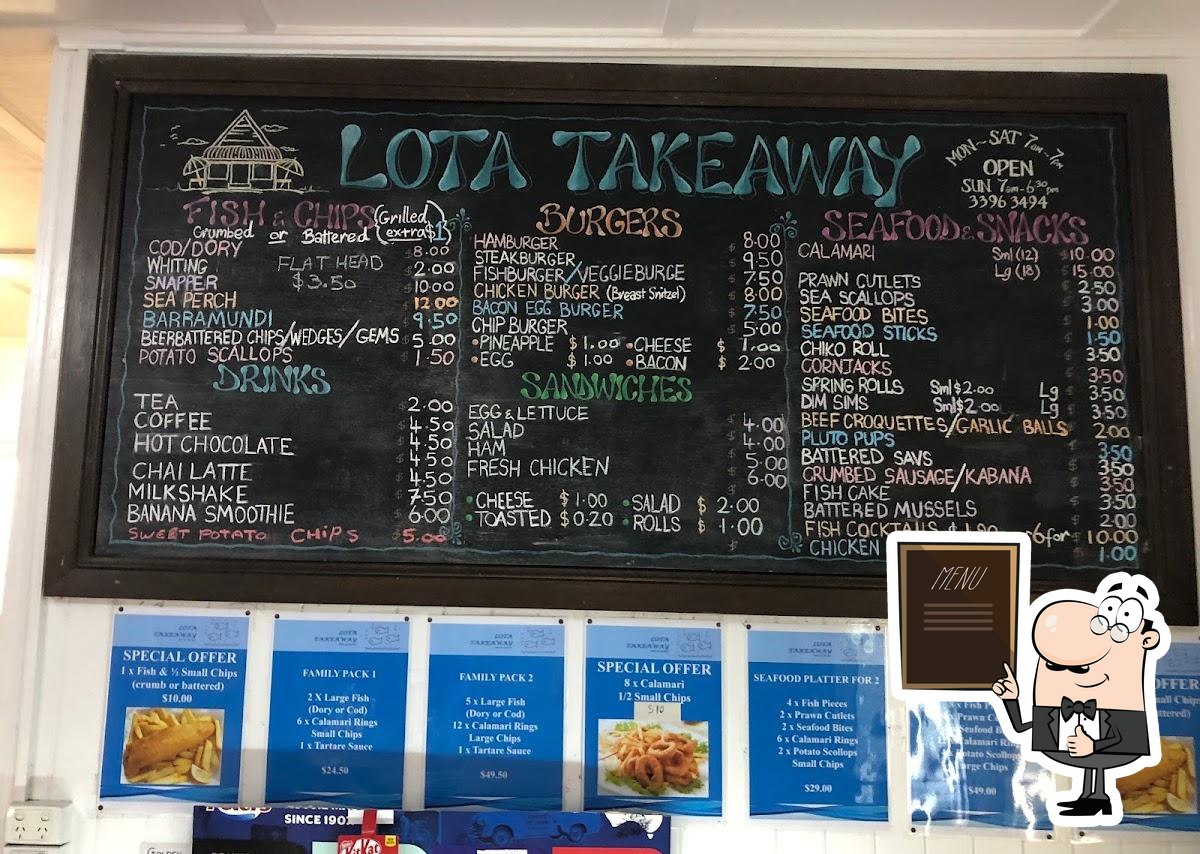 LOTA TAKEAWAY
MON~SAT 7am-7pm
OPEN
SUN 7am-6:30pm
3396 3494
FISH & CHIPS (Grilled extra $1)
Crumbed or Battered
COD/DORY 8.00
WHITING 2.00
FLAT HEAD
$3.50
SNAPPER 10.00
SEA PERCH 12.00
BARRAMUNDI 9.50
BEERBATTERED CHIPS/WEDGES/GEMS 5.00
POTATO SCALLOPS 1.50
DRINKS
TEA 2.00
COFFEE 4.50
HOT CHOCOLATE 4.50
CHAI LATTE 4.50
MILKSHAKE 7.50
BANANA SMOOTHIE 6.00
SWEET POTATO CHIPS 5.00
BURGERS
HAMBURGER 8.00
STEAKBURGER 9.50
FISHBURGER/VEGGIEBURGE 7.50
CHICKEN BURGER (Breast Snitzel) 8.00
BACON EGG BURGER 7.50
CHIP BURGER 5.00
• PINEAPPLE $1.00 • CHEESE $1.00
• EGG $1.00 • BACON $2.00
SANDWICHES
EGG & LETTUCE 4.00
SALAD 4.00
HAM 5.00
FRESH CHICKEN 6.00
• CHEESE $1.00 • SALAD $2.00
• TOASTED $0.20 • ROLLS $1.00
SEAFOOD & SNACKS
CALAMARI Sml (12) 10.00
Lg (18) 15.00
PRAWN CUTLETS 2.50
SEA SCALLOPS 3.00
SEAFOOD BITES 1.00
SEAFOOD STICKS 1.50
CHIKO ROLL 3.50
CORNJACKS 3.50
SPRING ROLLS Sml $2.00 Lg 3.50
DIM SIMS Sml $2.00 Lg 3.50
BEEF CROQUETTES/GARLIC BALLS 2.00
PLUTO PUPS 3.50
BATTERED SAVS 3.50
CRUMBED SAUSAGE/KABANA 3.50
FISH CAKE 3.50
BATTERED MUSSELS 2.00
FISH COCKTAILS $1.90 6 for 10.00
CHICKEN 1.00
LOTA
TAKEAWAY
SPECIAL OFFER
1 x Fish & ½ Small Chips
(crumb or battered)
$10.00
LOTA
TAKEAWAY
FAMILY PACK 1
2 X Large Fish
(Dory or Cod)
6 x Calamari Rings
Small Chips
1 x Tartare Sauce
$24.50
LOTA
TAKEAWAY
FAMILY PACK 2
5 x Large Fish
(Dory or Cod)
12 x Calamari Rings
Large Chips
1 x Tartare Sauce
$49.50
LOTA
TAKEAWAY
SPECIAL OFFER
8 x Calamari
1/2 Small Chips
$10
LOTA
TAKEAWAY
SEAFOOD PLATTER FOR 2
4 x Fish Pieces
2 x Prawn Cutlets
2 x Seafood Bites
6 x Calamari Rings
2 x Potato Scollops
Small Chips
$29.00
Large Chips
$49.00
OFFER
MENU
SINCE 190
KitKat
GOLDEN